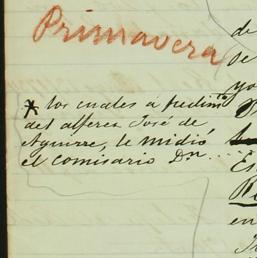 Primavera
* los cuales á pedimto
del alferes José de
Aguirre, le midió
el comisario Dn....
de
de
yo
Es
en